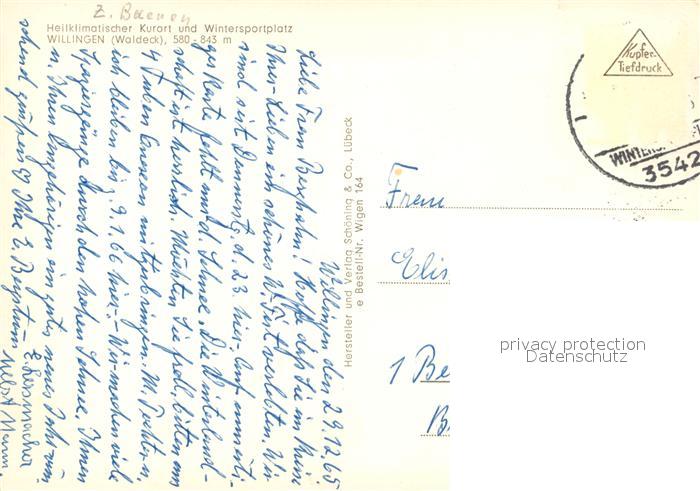 Z. Baeney
Heilklimatischer Kurort und Wintersportplatz
WILLINGEN (Waldeck), 580 - 843 m
Willingen den 29.12.65
Liebe Frau! Hoffe daß Sie im Kreise
Ihrer Lieben ein schönes W. Fest verlebten. Wir
sind seit Donnerst. d. 23. hier. Auf umseiti-
ger Karte fehlt nur d. Schnee. Die Winterland-
schaft ist herrlich. Möchten Sie bitten uns
4 mitzubringen. M. Tochter u.
ich bleiben bis 9.1.66 hier. Wir machen viele
Spaziergänge durch den hohen Schnee. Ihnen
u. Ihren Angehörigen ein gutes neues Jahr wün-
schend grüßen Sie Ihre
Hersteller und Verlag Schöning & Co., Lübeck
e Bestell-Nr. Wigen 164
Kupfer-
Tiefdruck
3542
Frau
Elis
1 Be
B
privacy protection
Datenschutz